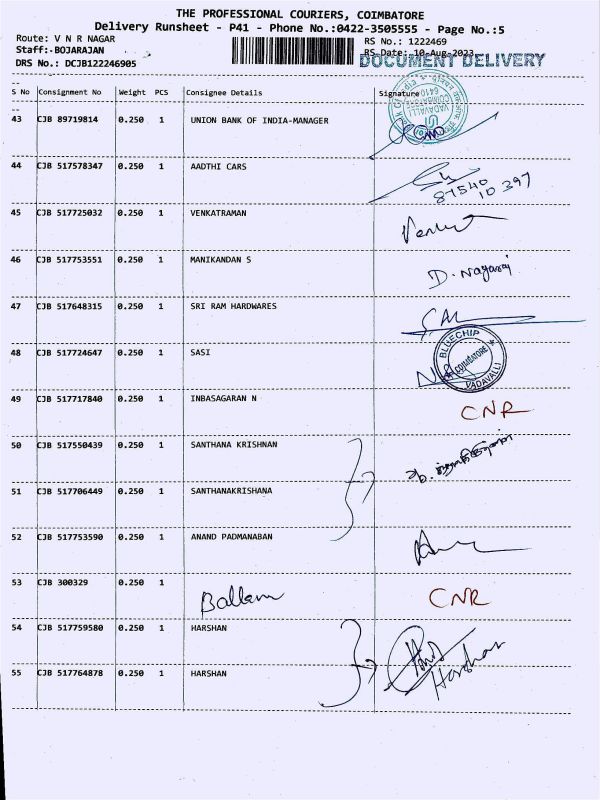 THE PROFESSIONAL COURIERS, COIMBATORE
Delivery Runsheet - P41 - Phone No.:0422-3505555 - Page No.:5
Route: V N R NAGAR
RS No.: 1222469
Staff:-BOJARAJAN
RS Date: 10-Aug-2023
DRS No.: DCJB122246905
DOCUMENT DELIVERY
S No Consignment No Weight PCS Consignee Details Signature
43 CJB 89719814 0.250 1 UNION BANK OF INDIA-MANAGER
VADAVALLI
COIMBATORE
6410
44 CJB 517578347 0.250 1 AADTHI CARS
87540
10 397
45 CJB 517725032 0.250 1 VENKATRAMAN Venkat
46 CJB 517753551 0.250 1 MANIKANDAN S D. Nagaraj
47 CJB 517648315 0.250 1 SRI RAM HARDWARES
48 CJB 517724647 0.250 1 SASI
BLUECHIP
COIMBATORE
VADAVALLI
49 CJB 517717840 0.250 1 INBASAGARAN N CNR
50 CJB 517550439 0.250 1 SANTHANA KRISHNAN
51 CJB 517706449 0.250 1 SANTHANAKRISHANA
52 CJB 517753590 0.250 1 ANAND PADMANABAN
53 CJB 300329 0.250 1 Ballam CNR
54 CJB 517759580 0.250 1 HARSHAN
Harshan
55 CJB 517764878 0.250 1 HARSHAN